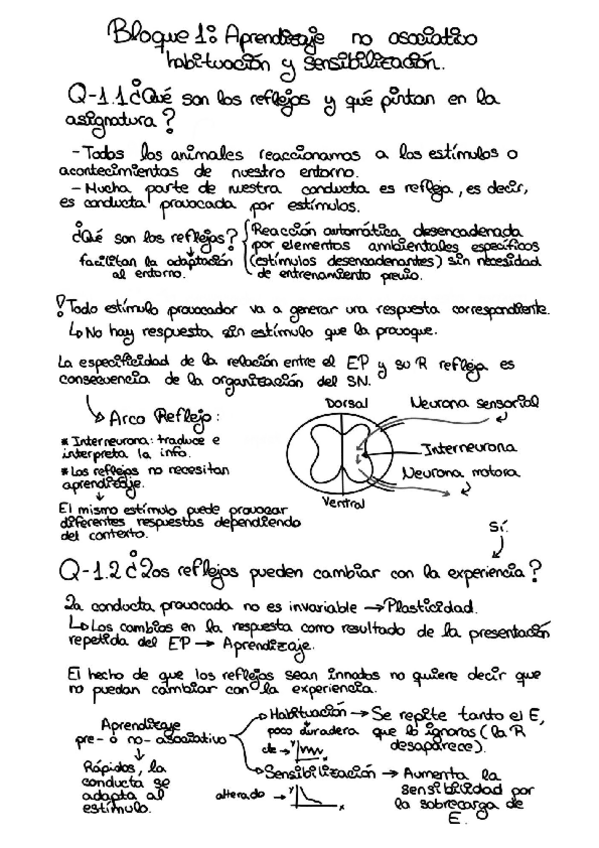 Bloque 1: Aprendizaje no asociativo
habituación y sensibilización.
Q-1.1 ¿Qué son los reflejos y qué pintan en la
asignatura?
- Todos los animales reaccionamos a los estímulos o
acontecimientos de nuestro entorno.
- Mucha parte de nuestra conducta es refleja, es decir,
es conducta provocada por estímulos.
¿Qué son los reflejos?
facilitan la adaptación
al entorno.
Reacción automática desencadenada
por elementos ambientales específicos
(estímulos desencadenantes) sin necesidad
de entrenamiento previo.
! Todo estímulo provocador va a generar una respuesta correspondiente.
↳ No hay respuesta sin estímulo que la provoque.
La especificidad de la relación entre el EP y su R refleja es
consecuencia de la organización del SN.
↳ Arco Reflejo:
* Interneurona: traduce e
interpreta la info.
* Los reflejos no necesitan
aprendizaje.
El mismo estímulo puede provocar
diferentes respuestas dependiendo
del contexto.
Dorsal
Neurona sensorial
Interneurona
Neurona motora
Ventral
Sí.
Q-1.2 ¿Los reflejos pueden cambiar con la experiencia?
La conducta provocada no es invariable → Plasticidad.
↳ Los cambios en la respuesta como resultado de la presentación
repetida del EP → Aprendizaje.
El hecho de que los reflejos sean innatos no quiere decir que
no puedan cambiar con la experiencia.
Aprendizaje
pre- o no- asociativo
Rápidos, la
conducta se
adapta al
estímulo.
Habituación → Se repite tanto el E,
poco duradera que lo ignoras (la R
desaparece).
de → y
Sensibilización → Aumenta la
sensibilidad por
la sobrecarga de
E.
alterado → y
x